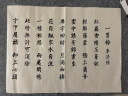 一剪梅 李清照
紅藕香殘玉簟秋
輕解羅裳 獨上蘭舟
雲中誰寄錦書來
雁字回時 月滿西樓
花自飄零水自流
一種相思 兩處閒愁
此情無計可消除
才下眉頭 卻上心頭